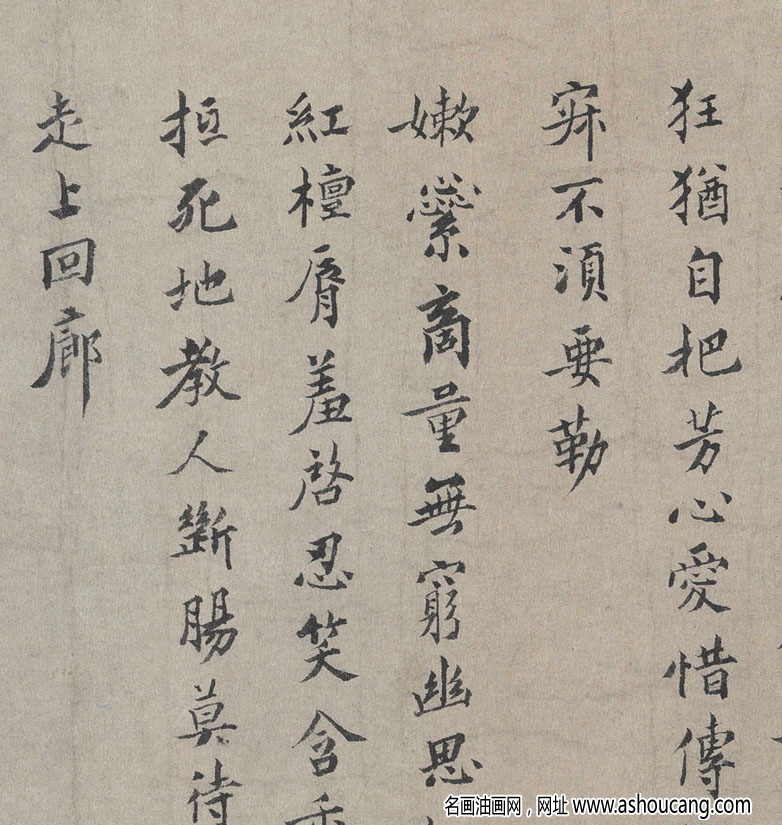 狂猶自把芳心愛惜傳
寂不須要勒
嫩蘂商量無窮幽思
紅檀脣羞啓忍笑含
抵死地教人斷腸莫待
走上回廊
名画油画网，网址 www.ashoucang.com